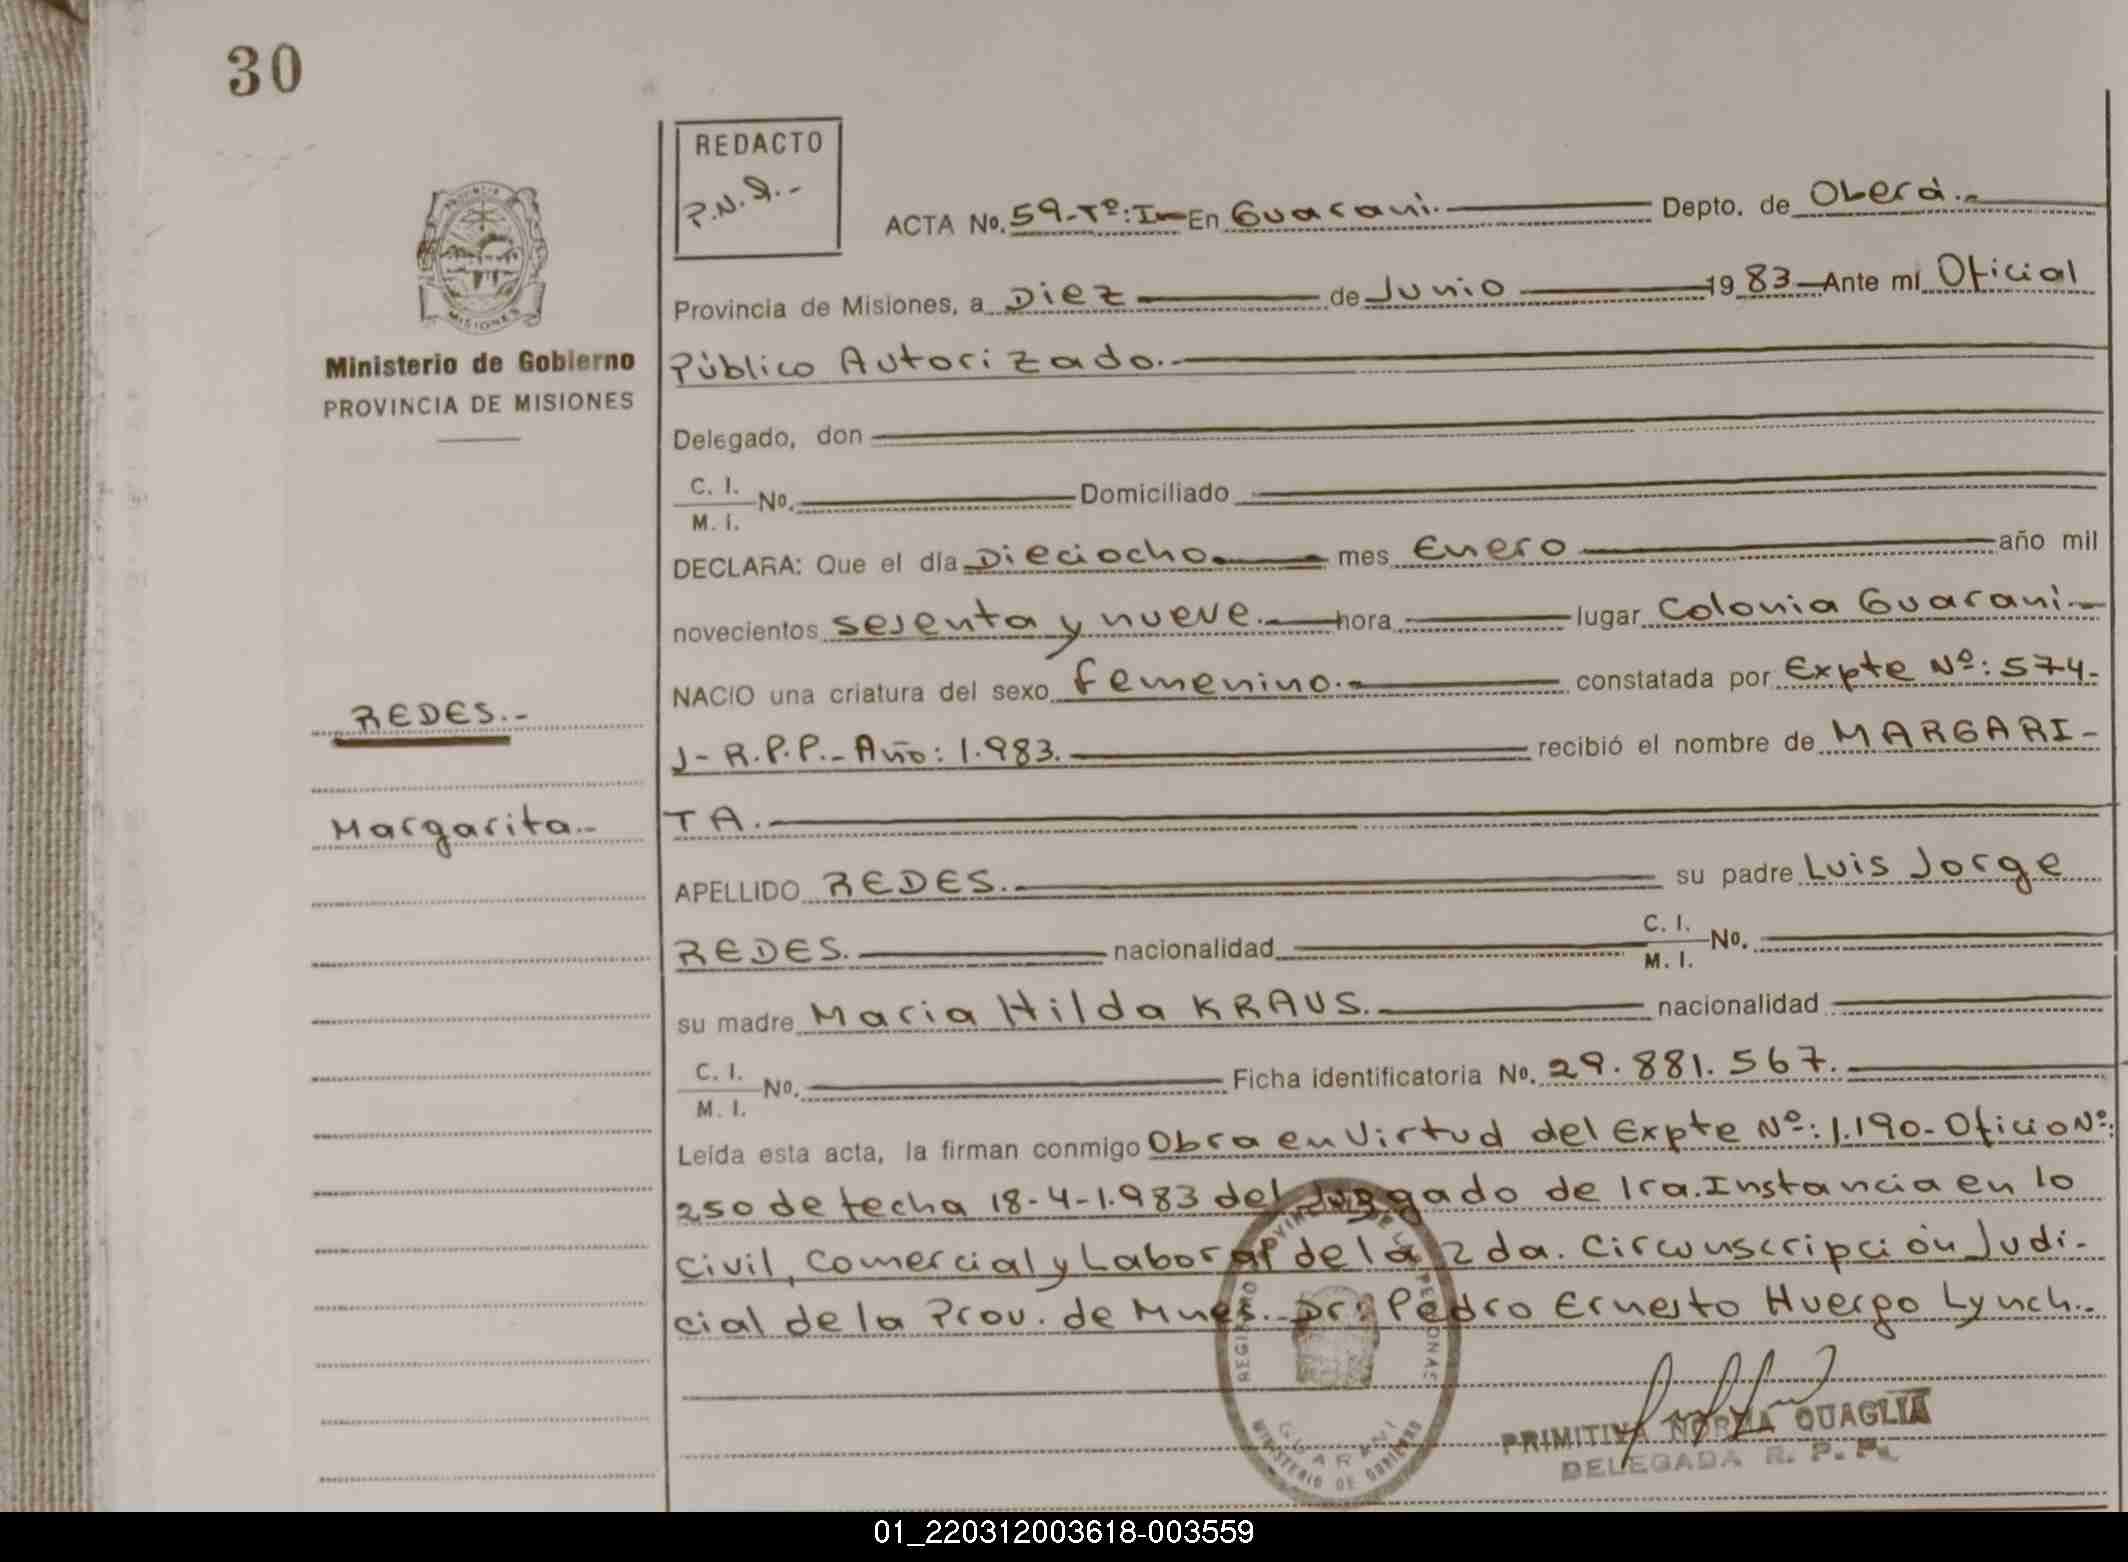 30
REDACTO
P.N.Q.-
ACTA No. 59-Tº:I- En Guarani.- Depto. de Oberá.-
PROVINCIA
MISIONES
Provincia de Misiones, a Diez de Junio 1983 Ante mí Oficial
Ministerio de Gobierno
PROVINCIA DE MISIONES
Público Autorizado.-
Delegado, don
C. I.
M. I. No. Domiciliado
DECLARA: Que el día Dieciocho mes Enero año mil
novecientos sesenta y nueve.- hora lugar Colonia Guarani.-
NACIO una criatura del sexo femenino.- constatada por Expte Nº: 574-
REDES.-
J- R.P.P.- Año: 1.983. recibió el nombre de MARGARI-
Margarita.-
TA.-
APELLIDO REDES.- su padre Luis Jorge
REDES. nacionalidad C. I.
M. I. No.
su madre Maria Hilda KRAUS. nacionalidad
C. I.
M. I. No. Ficha identificatoria No. 29.881.567.
Leída esta acta, la firman conmigo Obra en Virtud del Expte Nº: 1.190- Oficio Nº:
250 de fecha 18-4-1.983 del Juzgado de 1ra. Instancia en lo
Civil, Comercial y Laboral de la 2da. Circunscripción Judi-
cial de la Prov. de Mnes. Dr: Pedro Ernesto Huergo Lynch.-
REGISTRO PROVINCIAL DE LAS PERSONAS
GUARANI
MINISTERIO DE GOBIERNO
PRIMITIVA NORMA QUAGLIA
DELEGADA R. P. P.
01_220312003618-003559